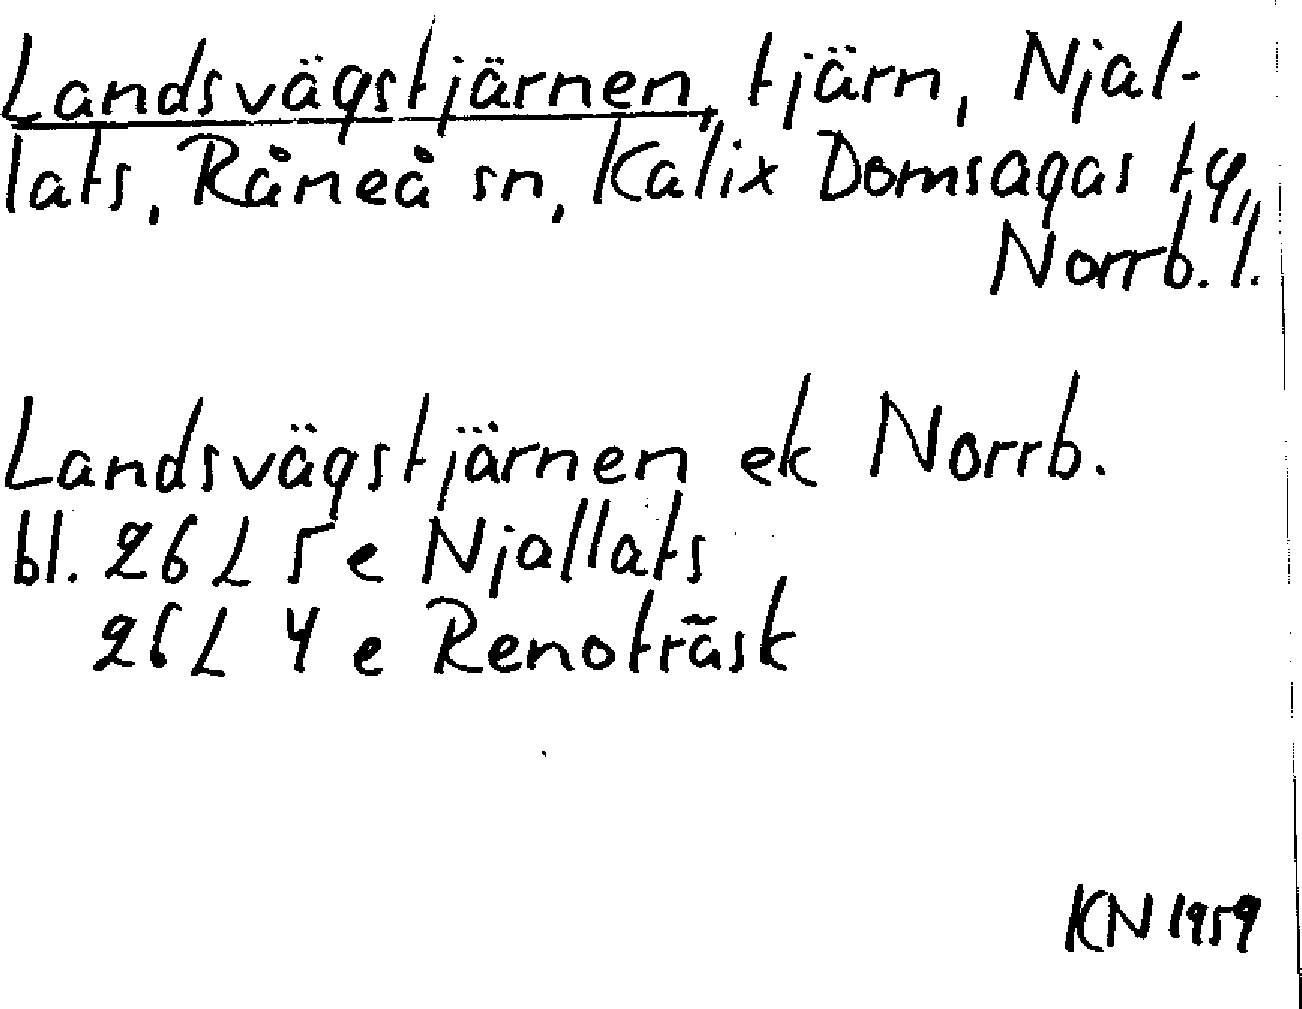 Landsvägstjärnen, tjärn, Njal-
lats, Råneå sn, Kalix Domsagas tg,
Norrb. l.
Landsvägstjärnen ek Norrb.
bl. 26 L 5 e Njallats
26 L 4 e Renoträsk
KN 1959